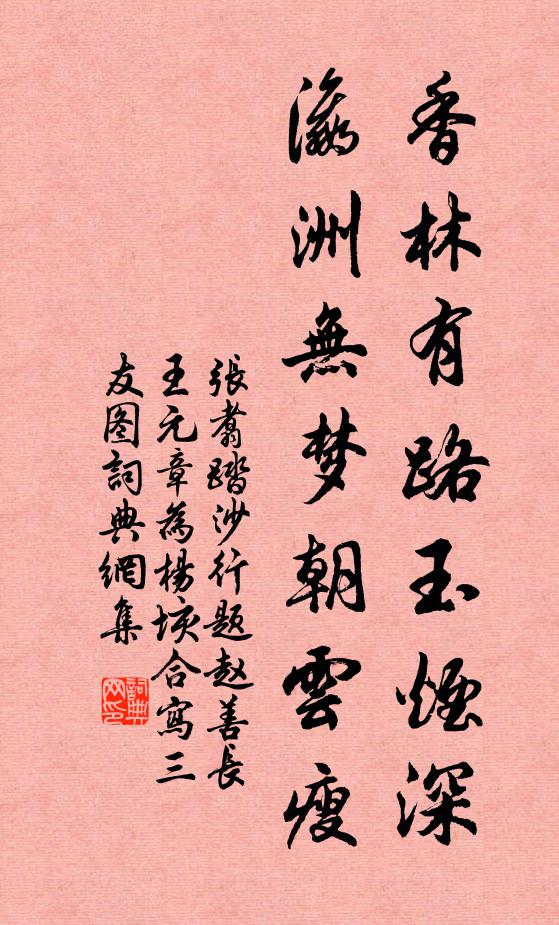 香林有路玉煙深
瀛洲無梦朝雲瘦
張翥踏沙行題赵善長
王元章為楊垓合寫三
友图詞典網集
詞典网印